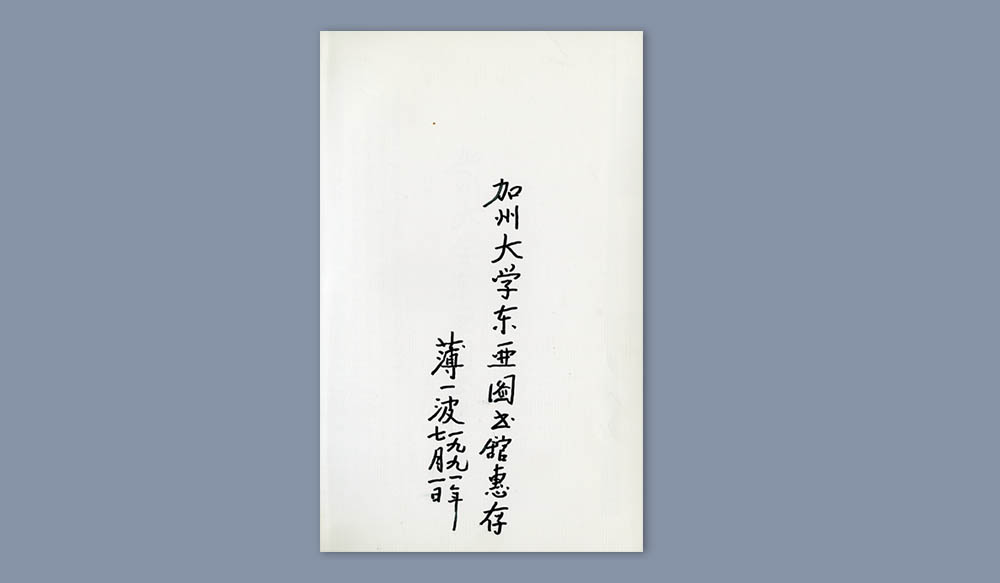 加州大学东亚图书馆惠存
薄一波
一九九一年
七月一日